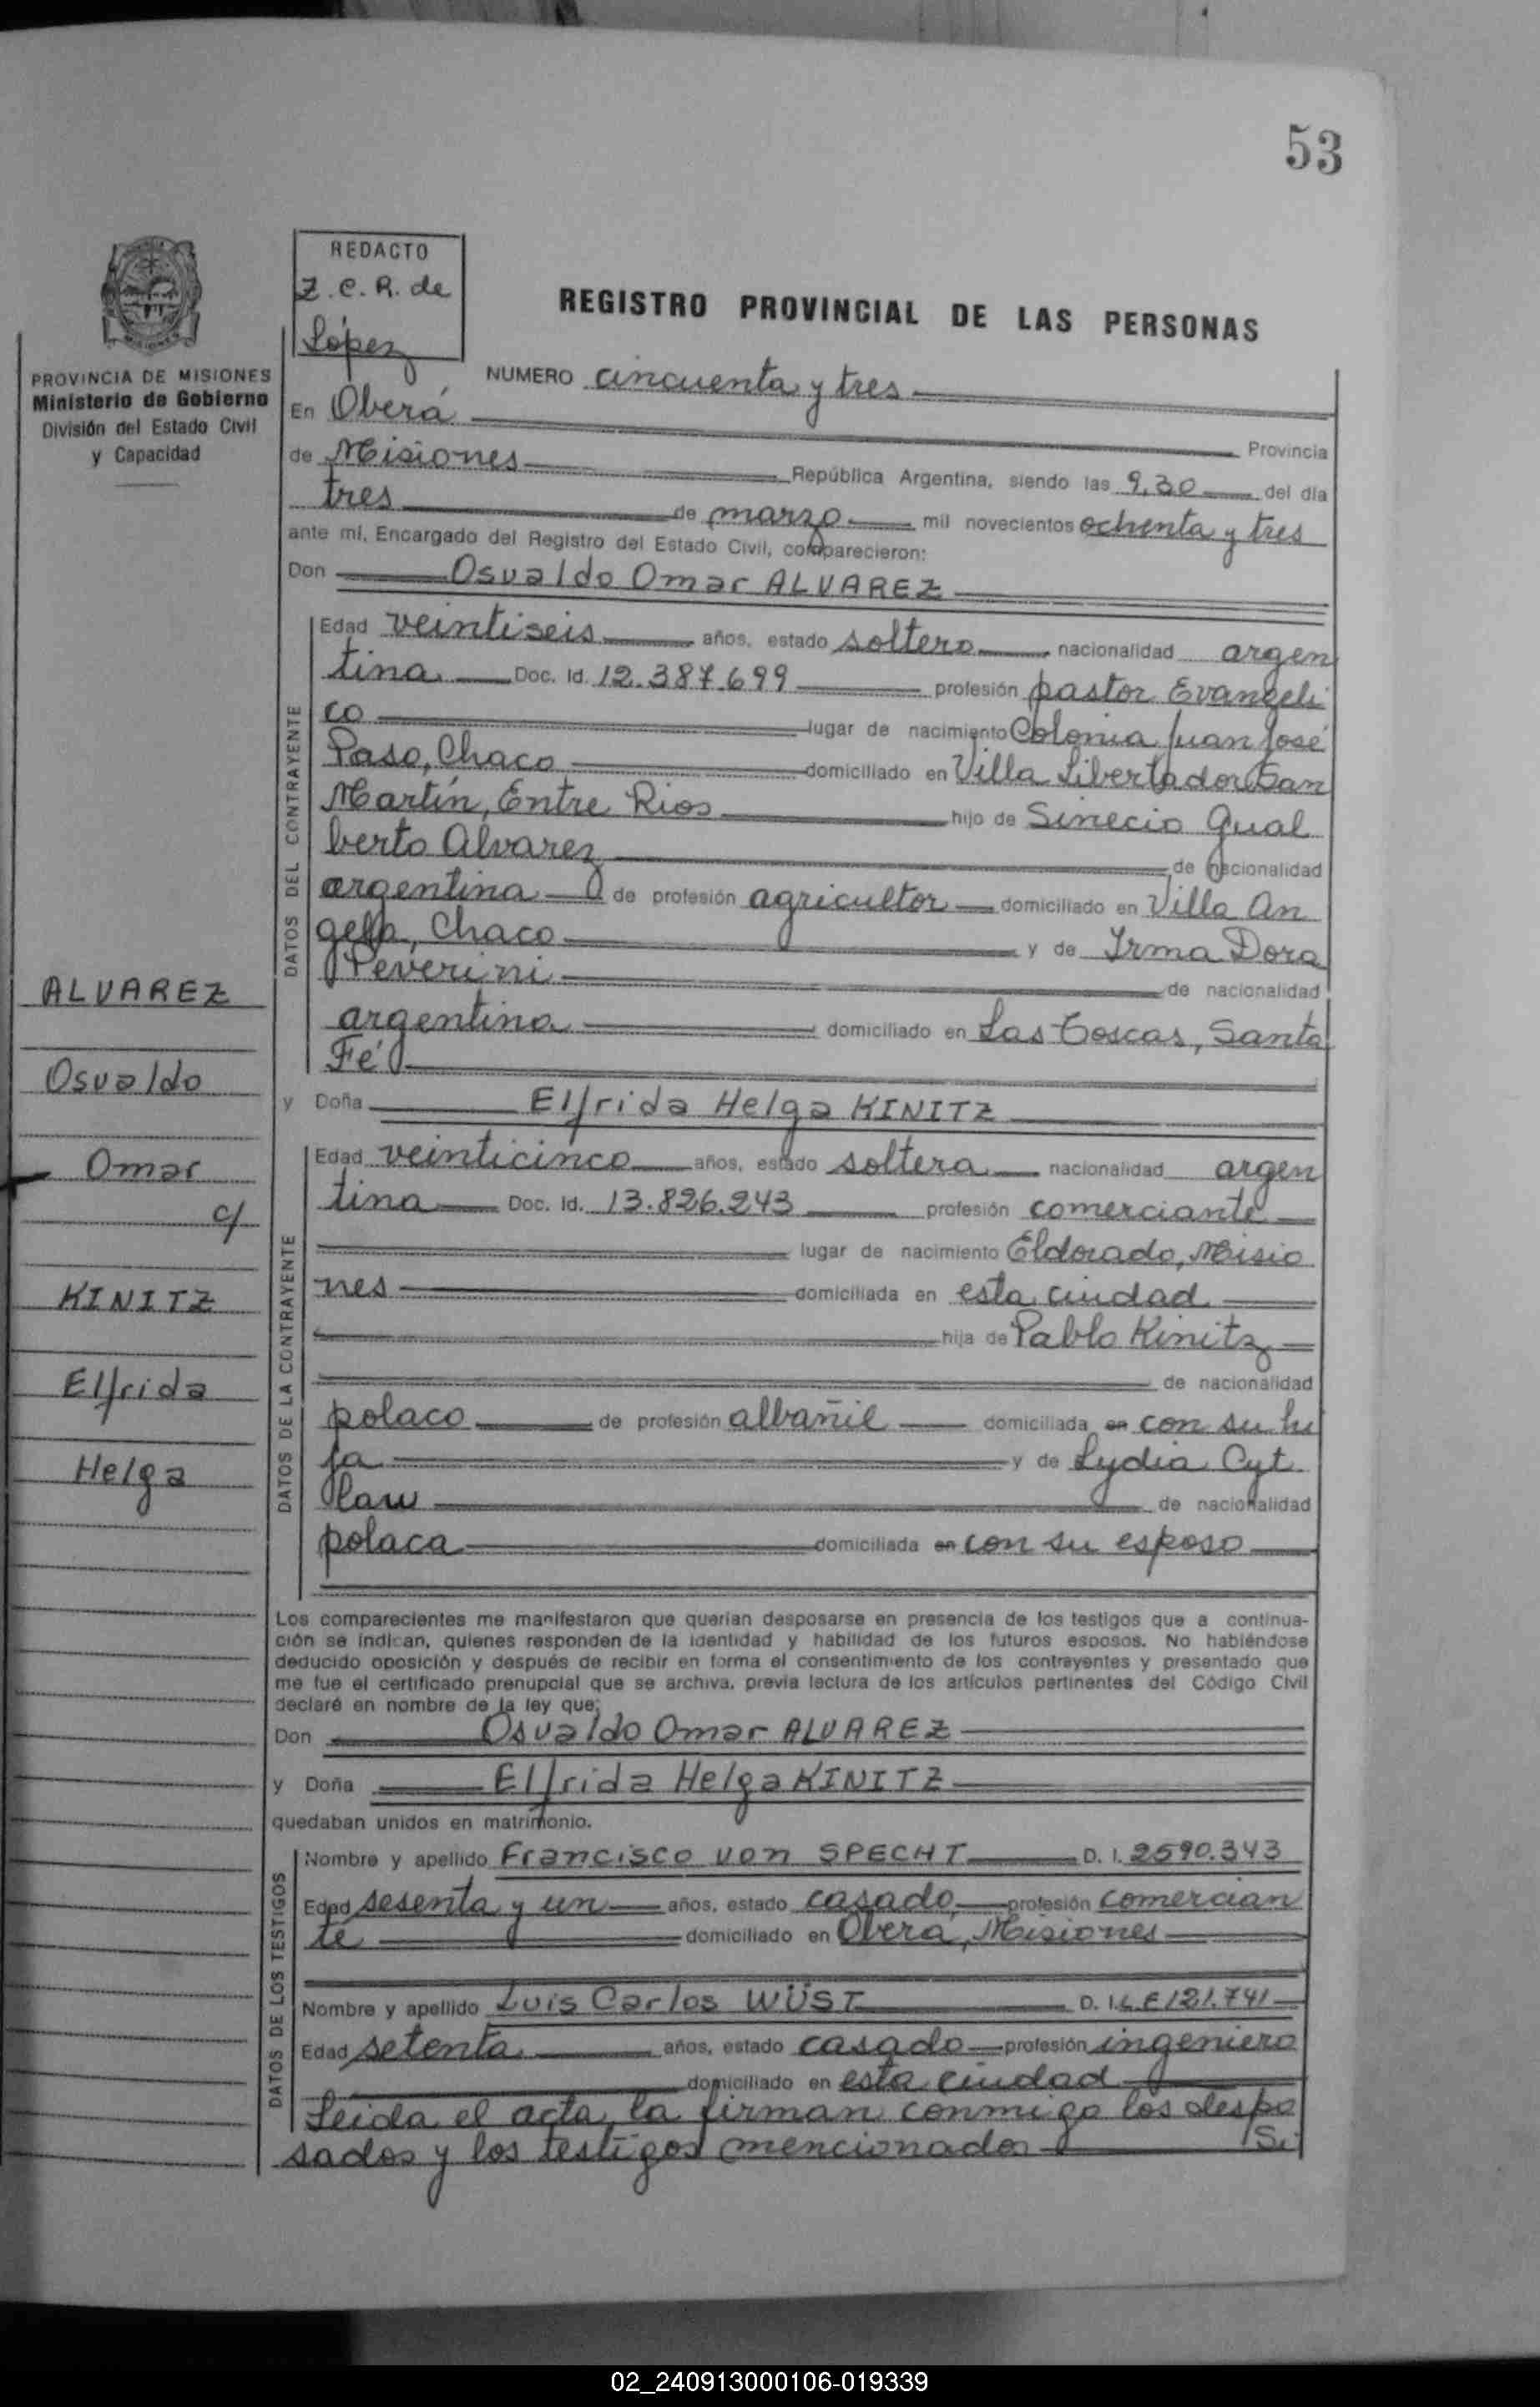 53
REDACTO
Z. C. R. de
López
REGISTRO PROVINCIAL DE LAS PERSONAS
PROVINCIA DE MISIONES
Ministerio de Gobierno
División del Estado Civil
y Capacidad
NUMERO cincuenta y tres
En Oberá
Provincia
de Misiones República Argentina, siendo las 9,30 del día
tres de marzo mil novecientos ochenta y tres
ante mí, Encargado del Registro del Estado Civil, comparecieron:
Don Osvaldo Omar ALVAREZ
DATOS DEL CONTRAYENTE
Edad veintiseis años, estado soltero nacionalidad argen
tina Doc. Id. 12.387.699 profesión pastor Evangeli
co lugar de nacimiento Colonia Juan José
Paso, Chaco domiciliado en Villa Libertador San
Martín, Entre Rios hijo de Sinecio Gual
berto Alvarez de nacionalidad
argentina de profesión agricultor domiciliado en Villa An
gela, Chaco y de Irma Dora
Peverini de nacionalidad
argentina domiciliado en Las Toscas, Santa
Fé
y Doña Elfrida Helga KINITZ
DATOS DE LA CONTRAYENTE
Edad veinticinco años, estado soltera nacionalidad argen
tina Doc. Id. 13.826.243 profesión comerciante
lugar de nacimiento Eldorado, Misio
nes domiciliada en esta ciudad
hija de Pablo Kinitz
de nacionalidad
polaco de profesión albañil domiciliada en con su hi
ja y de Lydia Cyt
law de nacionalidad
polaca domiciliada en con su esposo
ALVAREZ
Osvaldo
Omar
c/
KINITZ
Elfrida
Helga
Los comparecientes me manifestaron que querían desposarse en presencia de los testigos que a continua-
ción se indican, quienes responden de la identidad y habilidad de los futuros esposos. No habiéndose
deducido oposición y después de recibir en forma el consentimiento de los contrayentes y presentado que
me fue el certificado prenupcial que se archiva, previa lectura de los artículos pertinentes del Código Civil
declaré en nombre de la ley que:
Don Osvaldo Omar ALVAREZ
y Doña Elfrida Helga KINITZ
quedaban unidos en matrimonio.
DATOS DE LOS TESTIGOS
Nombre y apellido Francisco von SPECHT D. I. 2590.343
Edad sesenta y un años, estado casado profesión comercian
te domiciliado en Oberá, Misiones
Nombre y apellido Luis Carlos WÜST D. I. L E 121.741
Edad setenta años, estado casado profesión ingeniero
domiciliado en esta ciudad
Leida el acta, la firman conmigo los despo
sados y los testigos mencionados
02_240913000106-019339